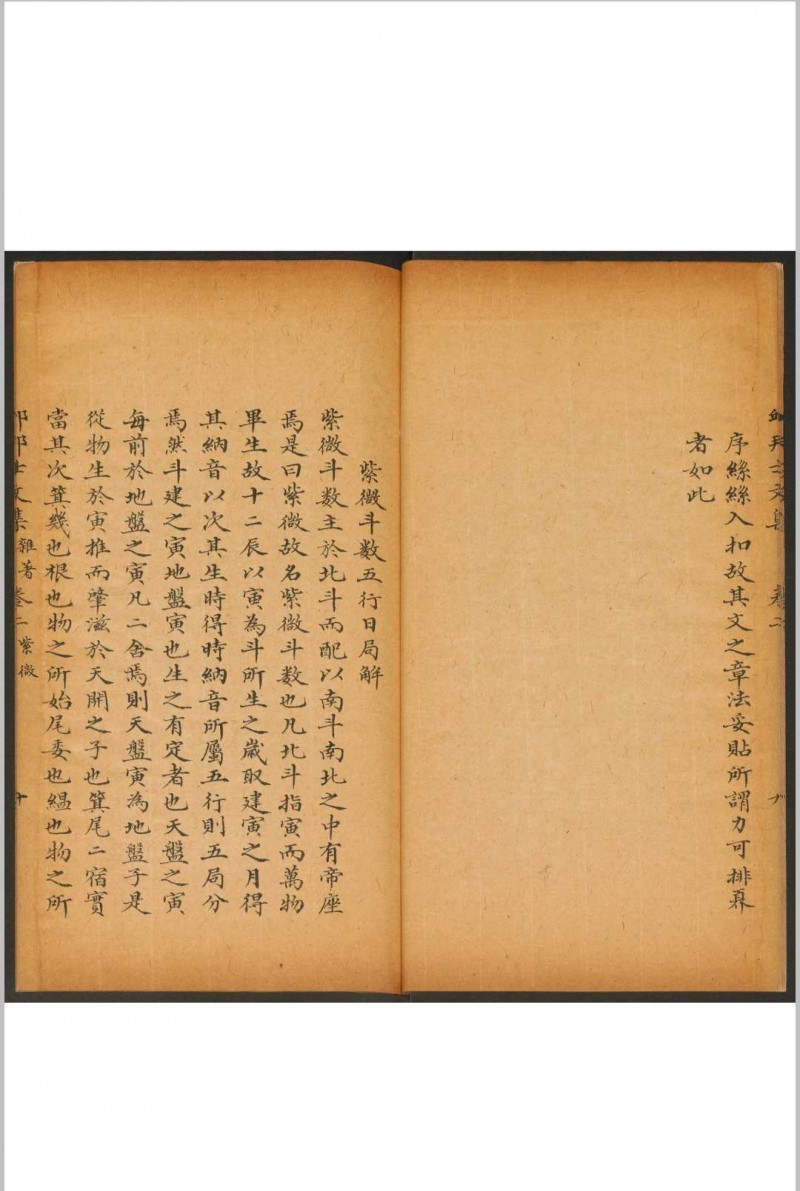 序絲絲入扣故其文之章法妥貼所謂力可排奡
者如此
紫微斗数五行日局解
紫微斗数主於北斗而配以南斗南北之中有帝座
焉是曰紫微故名紫微斗数也凡北斗指寅而萬物
畢生故十二辰以寅為斗所生之歲取建寅之月得
其納音以次其生時得時納音所屬五行則五局分
焉然斗建之寅地盤寅也生之有定者也天盤之寅
每前於地盤之寅凡二舍焉則天盤寅為地盤子是
從物生於寅推而肇滋於天開之子也箕尾二宿實
當其次箕幾也根也物之所始尾委也緼也物之所
文集 雜著卷二 紫微 十